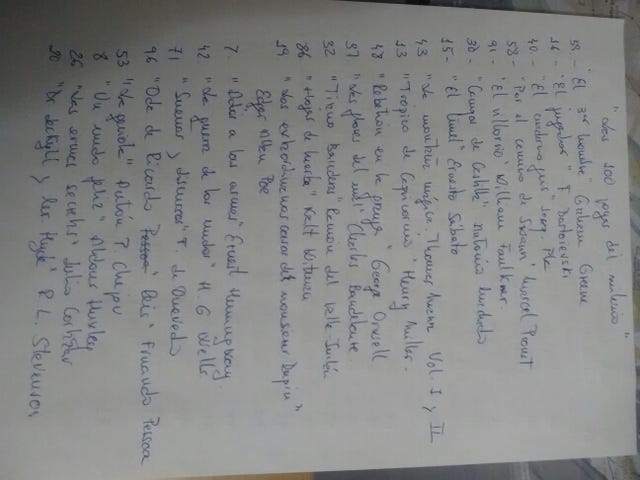 "Las 100 joyas del milenio"
58 - "El 3er hombre" Graham Greene
16 - "El jugador" F. Dostoievski
40 - "El cuaderno gris" Josep Pla
58 - "Por el camino de Swann" Marcel Proust
91 - "El villorrio" William Faulkner.
30 - "Campos de Castilla" Antonio Machado
15 - "El túnel" Ernesto Sabato
43 "La montaña mágica" Thomas Mann Vol I y II
13 "Trópico de Capricornio" Henry Miller.
48 "Rebelión en la granja" George Orwell
97 "Las flores del mal" Charles Baudelaire.
32 "Tirano Banderas" Ramón del Valle Inclán
86 "Hojas de hierba" Walt Whitman
19 "Los extraordinarios casos del monsieur Dupin"
Edgar Allan Poe
7. "Adiós a las armas" Ernest Hemingway.
42 "La guerra de los mundos" H. G Wells
71 "Sueños y discursos" F. de Quevedo
96 "Oda de Ricardo Reis" Fernando Pessoa
53 "La gaviota" Antón P. Chejov
8 "Un mundo feliz" Aldous Huxley
26 "Las armas secretas" Julio Cortázar
20 "Dr Jeckyll y Mr Hyde" R. L. Stevenson